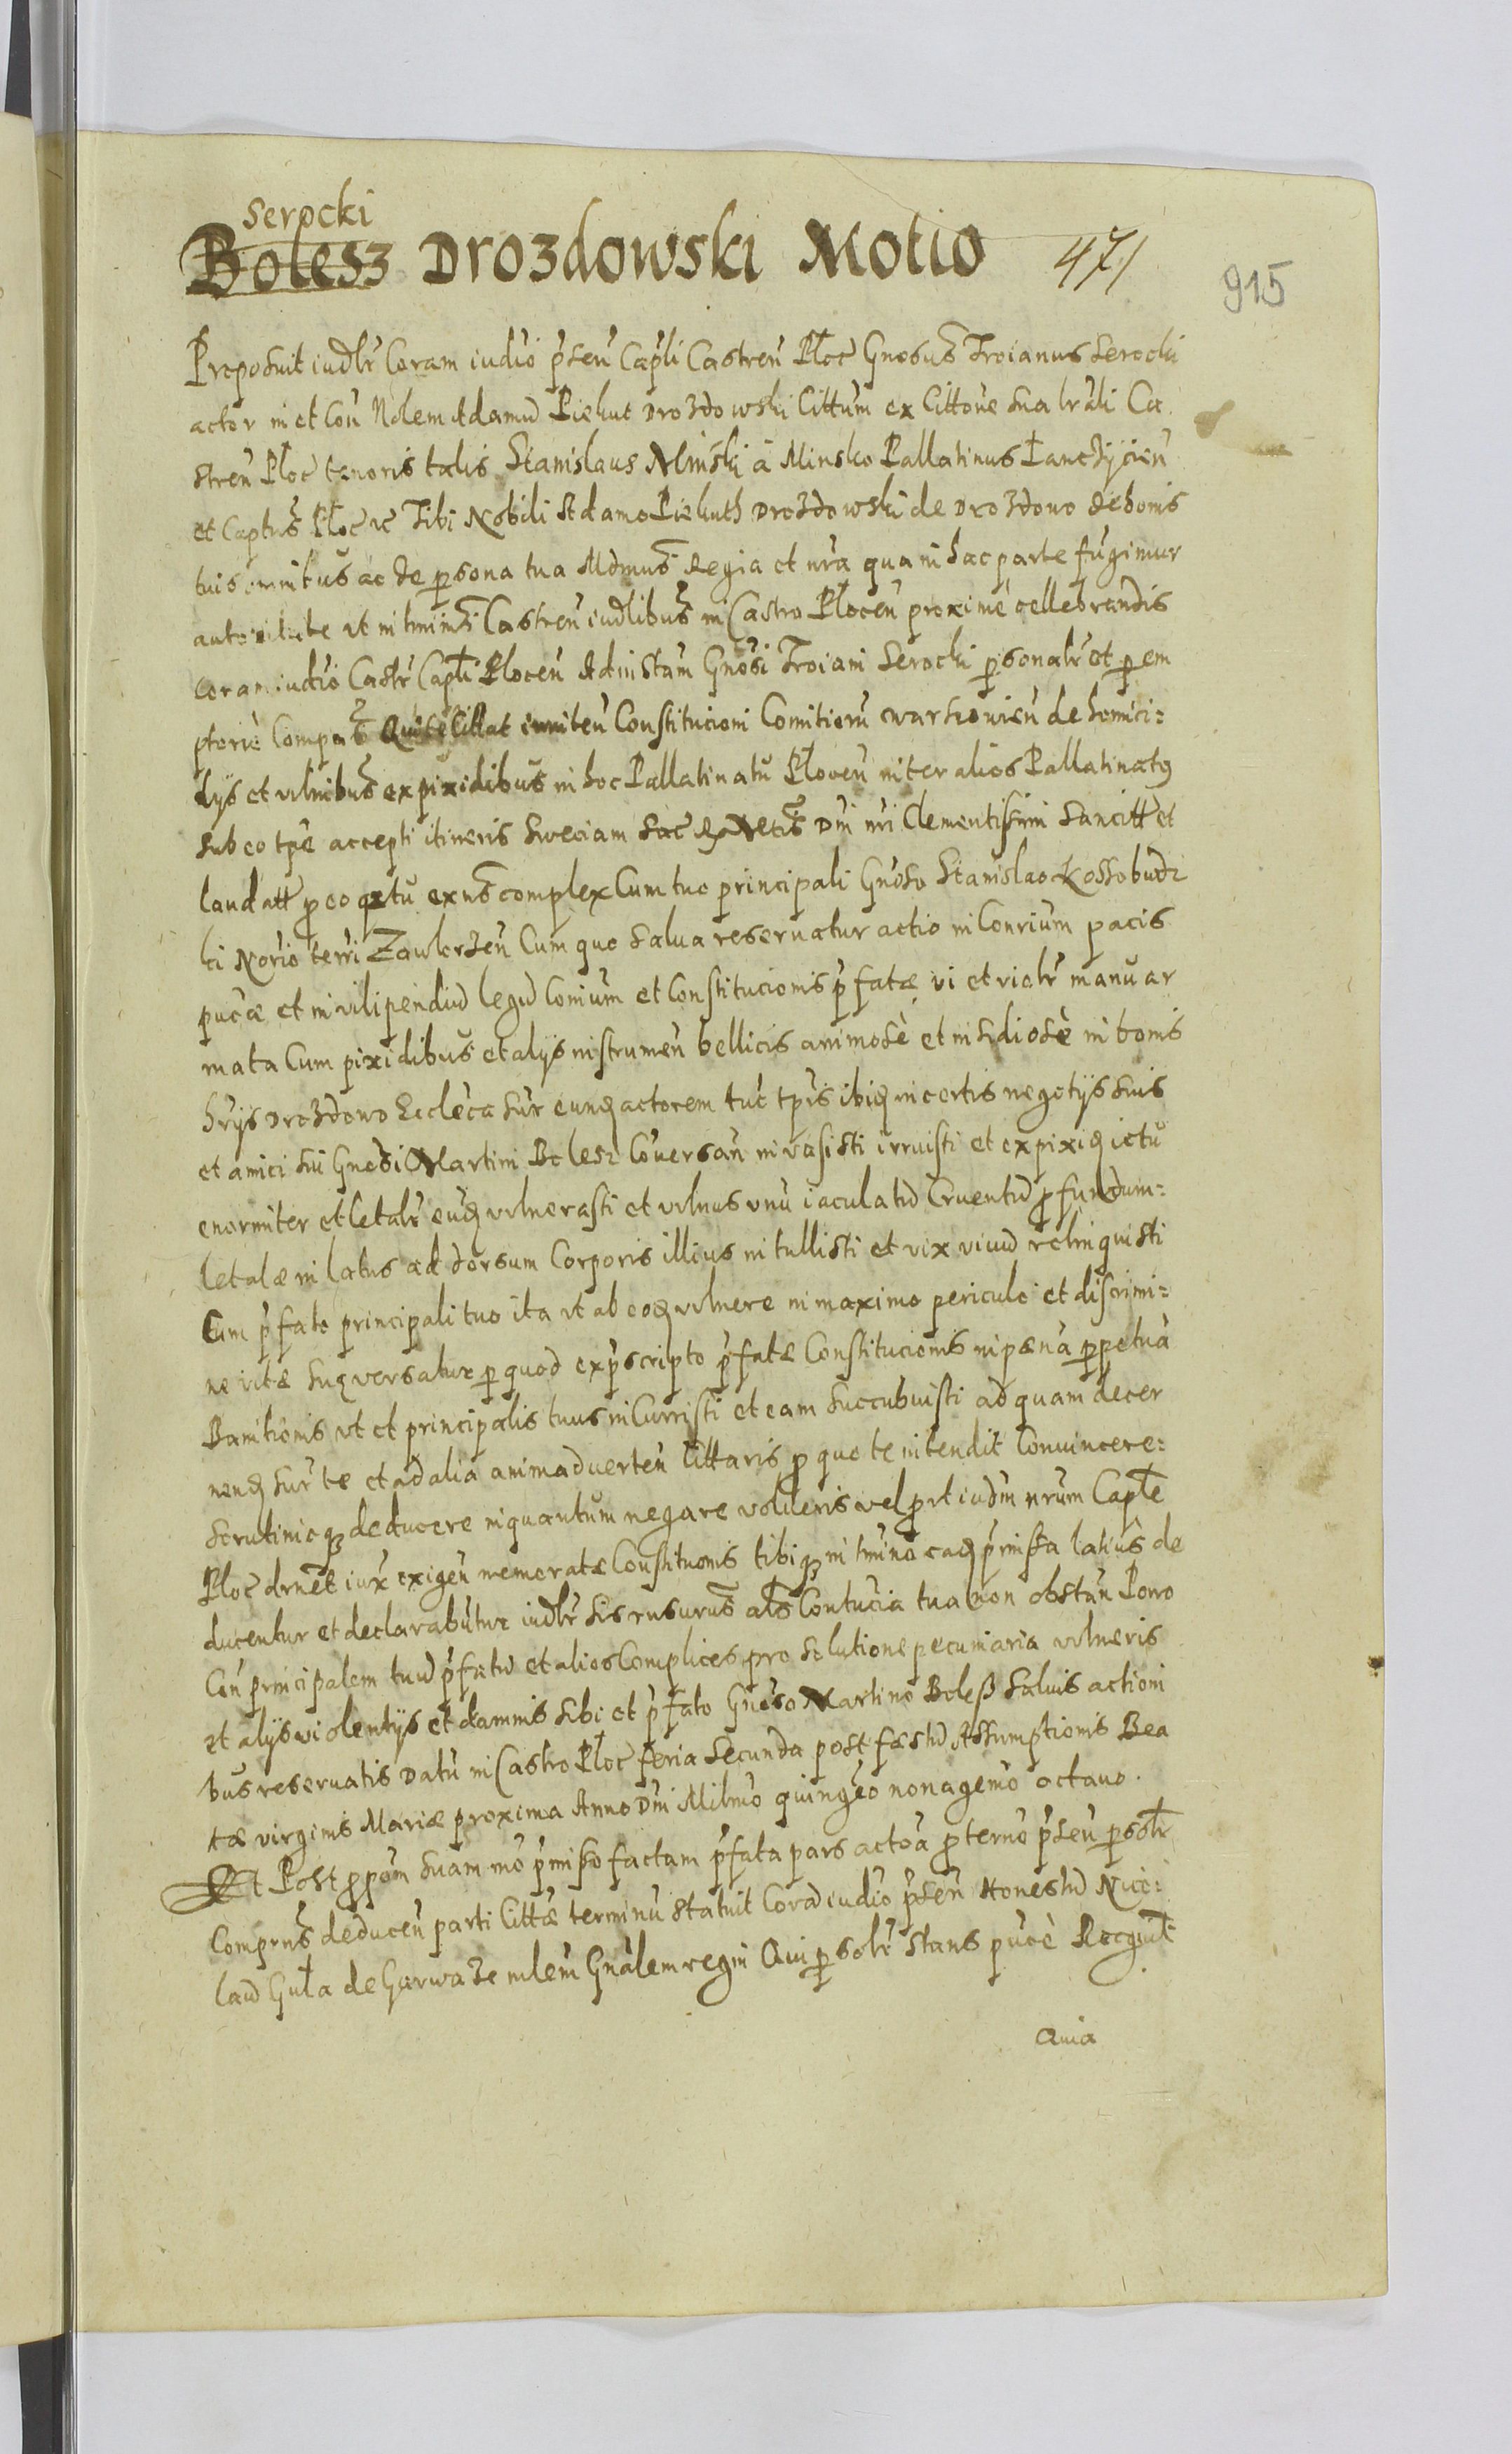 Serocki
Bolesz Drozdowski Motio 471
915
Proposuit iudlr Coram iudio p̃sen Capli Castren Ploc Gnosus Troianus Serocki
actor in et Con Nblem Adamu Piekut Drozdowski Cittum ex Cittone sua lrali Ca
stren Ploc tenoris talis Stanislaus Minski á Minsko Pallatinus Lanczycien
et Captus Ploc ꝛc Tibi Nobili Adamo Piekuth Drozdowski de Drozdowo de bonis
tuis omnibus ac de persona tua Mdmus Regia et nra qua in hac parte fugimur
autoritate vt in tminis Castren iudlibus in Castro Plocen proxime cellebrandis
coram iudio Castr Capli Plocen Ad instam Gnosi Troiani Serocki psonalr et pem
ptorie Compas Qui te Cittat inniten Constitucioni Comitioru warsovien de homici=
dys et vlnribus ex pixidibus in hoc Pallatinatu Plocen inter alios Pallatinatꝯ
sub eo tpe accepti itineris Sveciam Sac Rx Mttis Dni nri Clementissimi Sancitt et
laudatt p eo qz tu exns complex Cum tuo principali Gnoso Stanislao Kossobudz
ki Norio terri Zawkrzen Cum quo salua reseruatur actio in Conrium pacis
pucæ et in vilipendiu legu Conium et Constitucionis p̃fatæ vi et violr manu ar
mata Cum pixidibus et alys instrumen bellicis animosè et insidiosè in bonis
hrys Drozdowo Ecclèca sur eunꝗ actorem tuc tpris ibiꝗ in certis negotys suis
et amici sui Gnosi Martini Bolesz Conversan invasisti irruisti et ex pixiꝗ ictu
enormiter et letalr euꝗ vulnerasti et vulnus vnu iaculatu Cruentu pfundum=
letale in latus ad dorsum Corporis illius intullisti et vix viuu relinquisti
Cum p̃fato principali tuo ita vt ab eoꝗ vulnere in maximo periculo et discrimi=
ne vitæ suę versatur p quod ex p̃scripto p̃fatæ Constitucionis in pæna ppetuá
Banitionis vt et principalis tuus inCurristi et eam succubuisti ad quam decer
nenꝗ sur te et ad alia animaduerten Cittaris p quo te intendit Convincere=
Scrutinioqꝫ deducere inquantum negare volueris vel put iudm nrum Captle
Ploc drnet iux exigen memoratæ Constituonis tibiqꝫ in tmino eaꝗ p̃missa latius de
ducentur et declarabuntur iudlr sis rnsurus als Contucia tua non obstan Porro
Con principalem tuu p̃fatu et alios Complices pro solutione pecuniaria vulneris
et alys violentys et damnis sibi et p̃fato Gnoso Martino Boleß salvis actioni
bus reservatis Datu in Castro Ploc feria secunda post festu Assumptionis Bea
tæ virginis Mariæ proxima Anno Dni Milmo quingeo nonagemo octavo.
Et Post pposom suam mo p̃misso factam p̃fata pars actoa p terno p̃sen psolr
Comprns deducen parti Cittæ terminu statuit Cora iudio p̃sen Honestu Nico=
lau Gula de Garwacze mlem Gnalem regni Qui psolr stans puce Recgnit
Quia